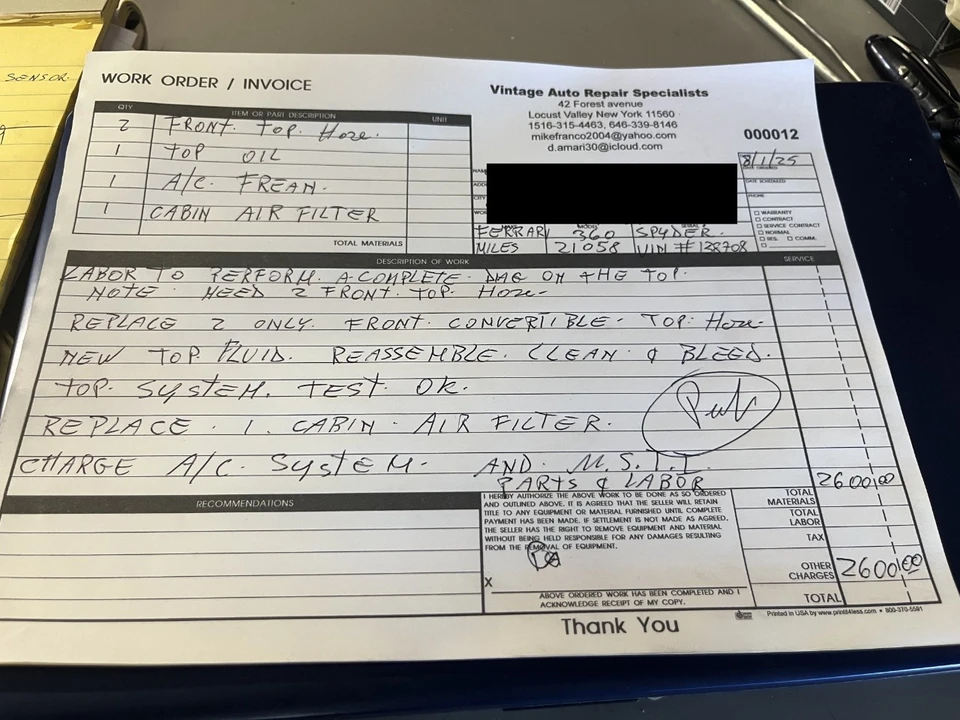 SENSOR
WORK ORDER / INVOICE
Vintage Auto Repair Specialists
42 Forest avenue
Locust Valley New York 11560
1516-315-4463, 646-339-8146
mikefranco2004@yahoo.com
d.amari30@icloud.com
000012
QTY ITEM OR PART DESCRIPTION UNIT
2 FRONT. TOP. Hoze.
1 TOP OIL
1 A/C. FREAN.
1 CABIN AIR FILTER
TOTAL MATERIALS
8/1/25
DATE ORDERED
DATE SCHEDULED
PHONE
WARRANTY
CONTRACT
SERVICE CONTRACT
NORMAL
RES. COMM.
FERRARI 360 SPYDER.
MILES 21058 VIN #128708
DESCRIPTION OF WORK SERVICE
LABOR TO PERFORM. A. COMPLETE. DIAG ON THE TOP.
NOTE. NEED 2 FRONT. TOP. Hoze.
REPLACE 2 ONLY. FRONT. CONVERTIBLE. TOP. Hoze
NEW TOP. FLUID. REASSEMBLE. CLEAN. & BLEED.
TOP. SYSTEM. TEST. OK.
REPLACE. 1. CABIN. AIR FILTER.
CHARGE A/C. SYSTEM. AND. M.S.T.I.
PARTS & LABOR 2600.00
RECOMMENDATIONS
I HEREBY AUTHORIZE THE ABOVE WORK TO BE DONE AS SO ORDERED
AND OUTLINED ABOVE. IT IS AGREED THAT THE SELLER WILL RETAIN
TITLE TO ANY EQUIPMENT OR MATERIAL FURNISHED UNTIL COMPLETE
PAYMENT HAS BEEN MADE. IF SETTLEMENT IS NOT MADE AS AGREED,
THE SELLER HAS THE RIGHT TO REMOVE EQUIPMENT AND MATERIAL
WITHOUT BEING HELD RESPONSIBLE FOR ANY DAMAGES RESULTING
FROM THE REMOVAL OF EQUIPMENT.
X
ABOVE ORDERED WORK HAS BEEN COMPLETED AND I
ACKNOWLEDGE RECEIPT OF MY COPY.
TOTAL MATERIALS
TOTAL LABOR
TAX
OTHER CHARGES 2600.00
TOTAL
Printed in USA by www.print4less.com • 800-370-5591
Thank You